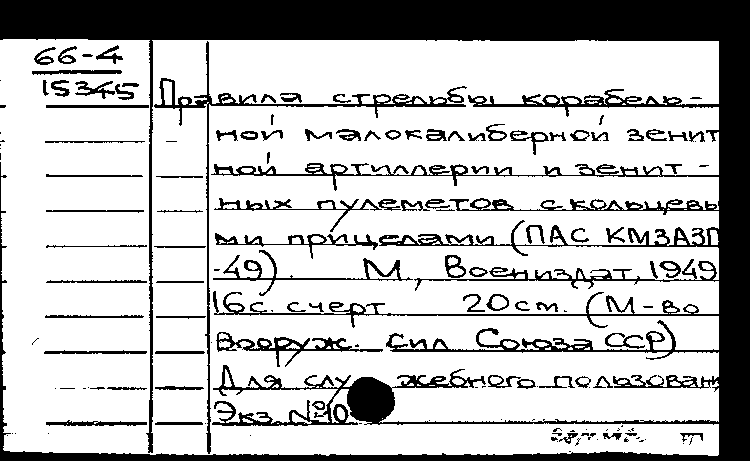 66-4
15345
Правила стрельбы корабель-
ной малокалиберной зенит
ной артиллерии и зенит-
ных пулеметов с кольцевы
ми прицелами (ПАС КМЗАЗП
-49). М., Воениздат, 1949
16с. с черт. 20 см. (М-во
Вооруж. Сил Союза ССР)
Для служебного пользован
Экз. №10